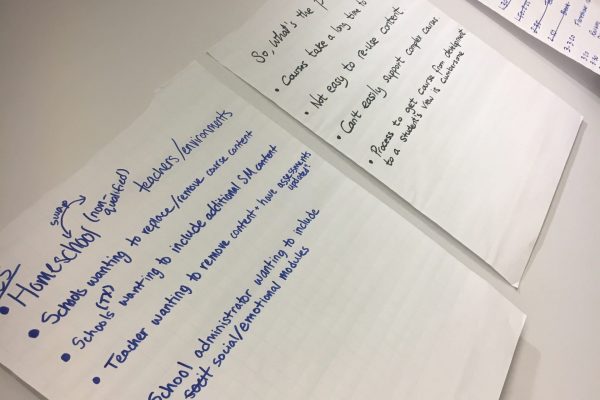 SWAP
• Homeschool (non-
qualified) teachers/environments
• Schools wanting to replace/remove course content
• Schools (TP) wanting to include additional SM content
• Teacher wanting to remove content + have assessments
updated!
School administrator wanting to include
social/emotional modules
So, what's the
• Courses take a long time to
• Not easy to re-use content
• Can't easily support complex courses
• Process to get course from development
to a student's view is cumbersome